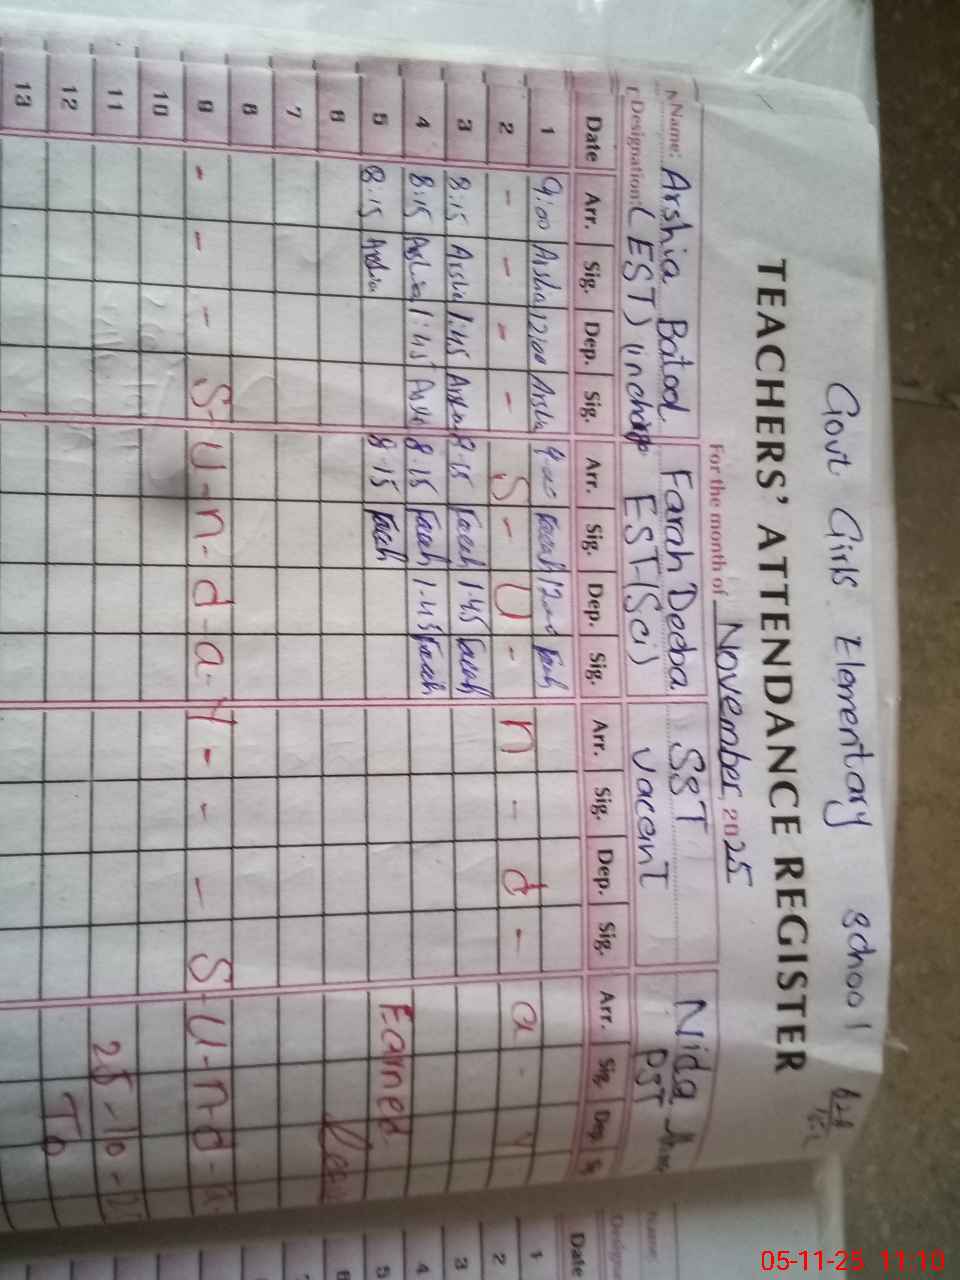 Govt Girls Elementary School
TEACHERS' ATTENDANCE REGISTER
For the month of November, 2025
Name: Arshia Batool Farah Deeba SST Nida
Designation: (EST) incharge EST (Sci) Vacant PST
Date Arr. Sig. Dep. Sig. Arr. Sig. Dep. Sig. Arr. Sig. Dep. Sig. Arr. Sig. Dep.
1 9:00 Arshia 12:00 Arshia 9:00 Farah 12:00 Farah
2 - - - - S - U - n - d - a - y
3 8:15 Arshia 1:45 Arshia 8:15 Farah 1:45 Farah
4 8:15 Arshia 1:45 Arshia 8:15 Farah 1:45 Farah
5 8:15 Arshia 8:15 Farah Earned
6
7
8
9 - - - S - U - n - d - a - y - - - S - U - n - d - a
10
11 25-10-
12 To
13
Name:
Date
1
2
3
4
5
6
05-11-25 11:10